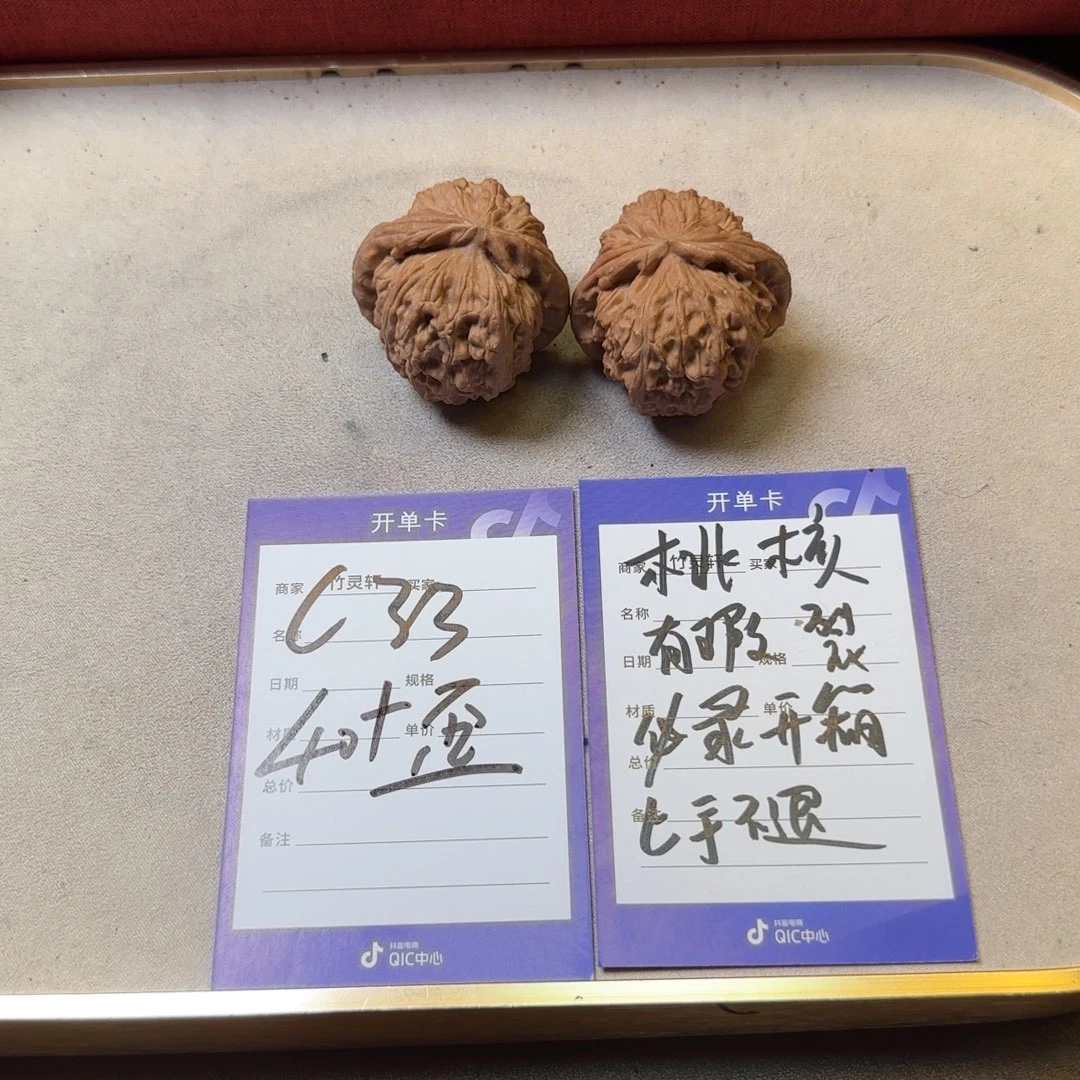 开单卡
商家 竹灵轩 买家
C33
名称
日期 规格
40+
材质 单价
总价
备注
抖音电商
QIC中心
开单卡
桃核
商家 竹灵轩 买家
名称
有瑕 裂
日期 规格
必录开箱
材质 单价
总价
上手不退
备注
抖音电商
QIC中心